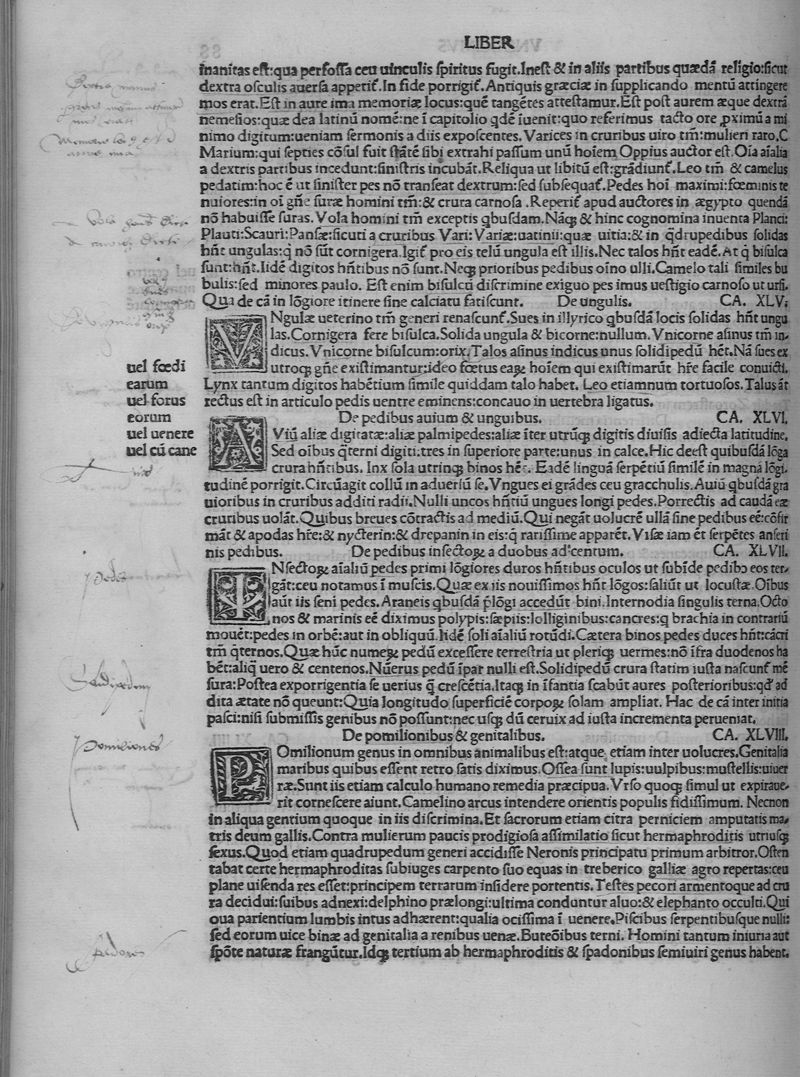 LIBER
inanitas est:qua perfossa ceu uinculis spiritus fugit.Inest & in aliis partibus quædā religio:sicut
dextra osculis auersa apperiť.In fide porrigiť.Antiquis græciæ in supplicando mentū attingere
mos erat.Est in aure ima memoriæ locus:quē tangētes attestamur.Est post aurem æque dextrā
nemesios:quæ dea latinū nomē:ne ī capitolio qdē iuenit:quo referimus tacto ore ꝓximū a mi
nimo digitum:ueniam sermonis a diis exposcentes.Varices in cruribus uiro tm̄:mulieri raro.C
Marium:qui septies cōsul fuit stātē sibi extrahi passum unū hoīem Oppius auctor est.Oīa aīalia
a dextris partibus incedunt:sinistris incubāt.Reliqua ut libitū est:grādiunť.Leo tm̄ & camelus
pedatim:hoc ē ut sinister pes nō transeat dextrum:sed subsequať.Pedes hoī maximi:fœminis te
nuiores:in oī gn̄e suræ homini tm̄:& crura carnosa .Reperiť apud auctores in ægypto quendā
nō habuisse suras. Vola homini tm̄ exceptis qbusdam.Nāqꝫ & hinc cognomina inuenta Planci:
Plauti:Scauri:Pansæ:sicuti a cruribus Vari: Variæ:uatinii:quæ uitia:& in qdrupedibus solidas
hn̄t ungulas:q̄ nō sūt cornigera.Igiť pro eis telū ungula est illis.Nec talos hn̄t eadē.At q̄ bisulca
sunt:hn̄t.Iidē digitos hn̄tibus nō sunt.Neqꝫ prioribus pedibus oīno ulli.Camelo tali similes bu
bulis:sed minores paulo. Est enim bisulcū discrimine exiguo pes imus uestigio carnoso ut ursi.
Qua de cā in lōgiore itinere sine calciatu fatiscunt. De ungulis. CA. XLV.
VNgulæ ueterino tm̄ generi renascunť.Sues in illyrico qbusdā locis solidas hn̄t ungu
las.Cornigera fere bisulca.Solida ungula & bicorne:nullum.Vnicorne asinus tm̄ in-
dicus.Vnicorne bisulcum:orix.Talos asinus indicus unus solidipedū hēt.Nā sues ex
utroqꝫ gn̄e existimantur:ideo fœtus eaꝝ hoīem qui existimarūt hr̄e facile conuicti.
Lynx tantum digitos habētium simile quiddam talo habet. Leo etiamnum tortuosos.Talus āt
rectus est in articulo pedis uentre eminens:concauo in uertebra ligatus.
De pedibus auium & unguibus. CA. XLVI.
AViū aliæ digitatæ:aliæ palmipedes:aliæ īter utrūqꝫ digitis diuisis adiecta latitudine.
Sed oībus qterni digiti:tres in superiore parte:unus in calce.Hic deest quibusdā lōga
crura hn̄tibus. Inx sola utrinqꝫ binos hēt. Eadē linguā serpētiū similē in magnā lōgi-
tudinē porrigit.Circūagit collū in aduersū se.Vngues ei grādes ceu gracchulis.Auiū qbusdā gra
uioribus in cruribus additi radii.Nulli uncos hn̄tiū ungues longi pedes.Porrectis ad caudā eæ
cruribus uolāt.Quibus breues cōtractis ad mediū.Qui negāt uolucrē ullā sine pedibus eē:cōfir
māt & apodas hr̄e:& nycterin:& drepanin in eis:q̄ rarissime apparēt.Visæ iam ēt serpētes anseri
nis pedibus. De pedibus insectoꝝ a duobus ad centum. CA. XLVII.
INsectoꝝ aīaliū pedes primi lōgiores duros hn̄tibus oculos ut subīde pedibo eos ter-
gāt:ceu notamus ī muscis.Quæ ex iis nouissimos hn̄t lōgos:saliūt ut locustæ.Oībus
āut iis seni pedes.Araneis qbusdā p̄lōgi accedūt bini.Internodia singulis terna.Octo
nos & marinis eē diximus polypis:sæpiis:lolliginibus:cancres:q brachia in contrariū
mouēt:pedes in orbē:aut in obliquū.Iidē soli aīaliū rotūdi.Cætera binos pedes duces hn̄t:cācri
tm̄ qternos.Quæ hūc numeꝝ pedū excessere terrestria ut pleriqꝫ uermes:nō īfra duodenos ha
bēt:aliq uero & centenos.Nūerus pedū īpar nulli est.Solidipedū crura statim iusta nascunť mē
sura:Postea exporrigentia se uerius q̄ crescētia.Itaqꝫ in īfantia scabūt aures posterioribus:qd' ad
dita ætate nō queunt:Quia longitudo superficiē corpoꝝ solam ampliat. Hac de cā inter initia
pasci:nisi submissis genibus nō possunt:nec usqꝫ dū ceruix ad iusta incrementa perueniat.
De pomilionibus & genitalibus. CA. XLVIII.
POmilionum genus in omnibus animalibus est:atque etiam inter uolucres.Genitalia
maribus quibus essent retro satis diximus.Ossea sunt lupis:uulpibus:mustellis:uiuer
ræ.Sunt iis etiam calculo humano remedia præcipua. Vrso quoqꝫ simul ut expiraue-
rit cornescere aiunt.Camelino arcus intendere orientis populis fidissimum. Necnon
in aliqua gentium quoque in iis discrimina.Et sacrorum etiam citra perniciem amputatis ma-
tris deum gallis.Contra mulierum paucis prodigiosa assimilatio sicut hermaphroditis utriusqꝫ
sexus.Quod etiam quadrupedum generi accidisse Neronis principatu primum arbitror.Osten
tabat certe hermaphroditas subiuges carpento suo equas in treberico galliæ agro repertas:ceu
plane uisenda res esset:principem terrarum insidere portentis.Testes pecori armentoque ad cru
ra decidui:suibus adnexi:delphino prælongi:ultima conduntur aluo:& elephanto occulti.Qui
oua parientium lumbis intus adhærent:qualia ocissima ī uenere.Piscibus serpentibusque nulli:
sed eorum uice binæ ad genitalia a renibus uenæ.Buteōibus terni. Homini tantum iniuria aut
spōte naturæ frangūtur.Idqꝫ tertium ab hermaphroditis & spadonibus semiuiri genus habent.
uel fœdi
earum
uel forus
eorum
uel uenere
uel cū cane
Pedes
Solidipedum
Pomiliones